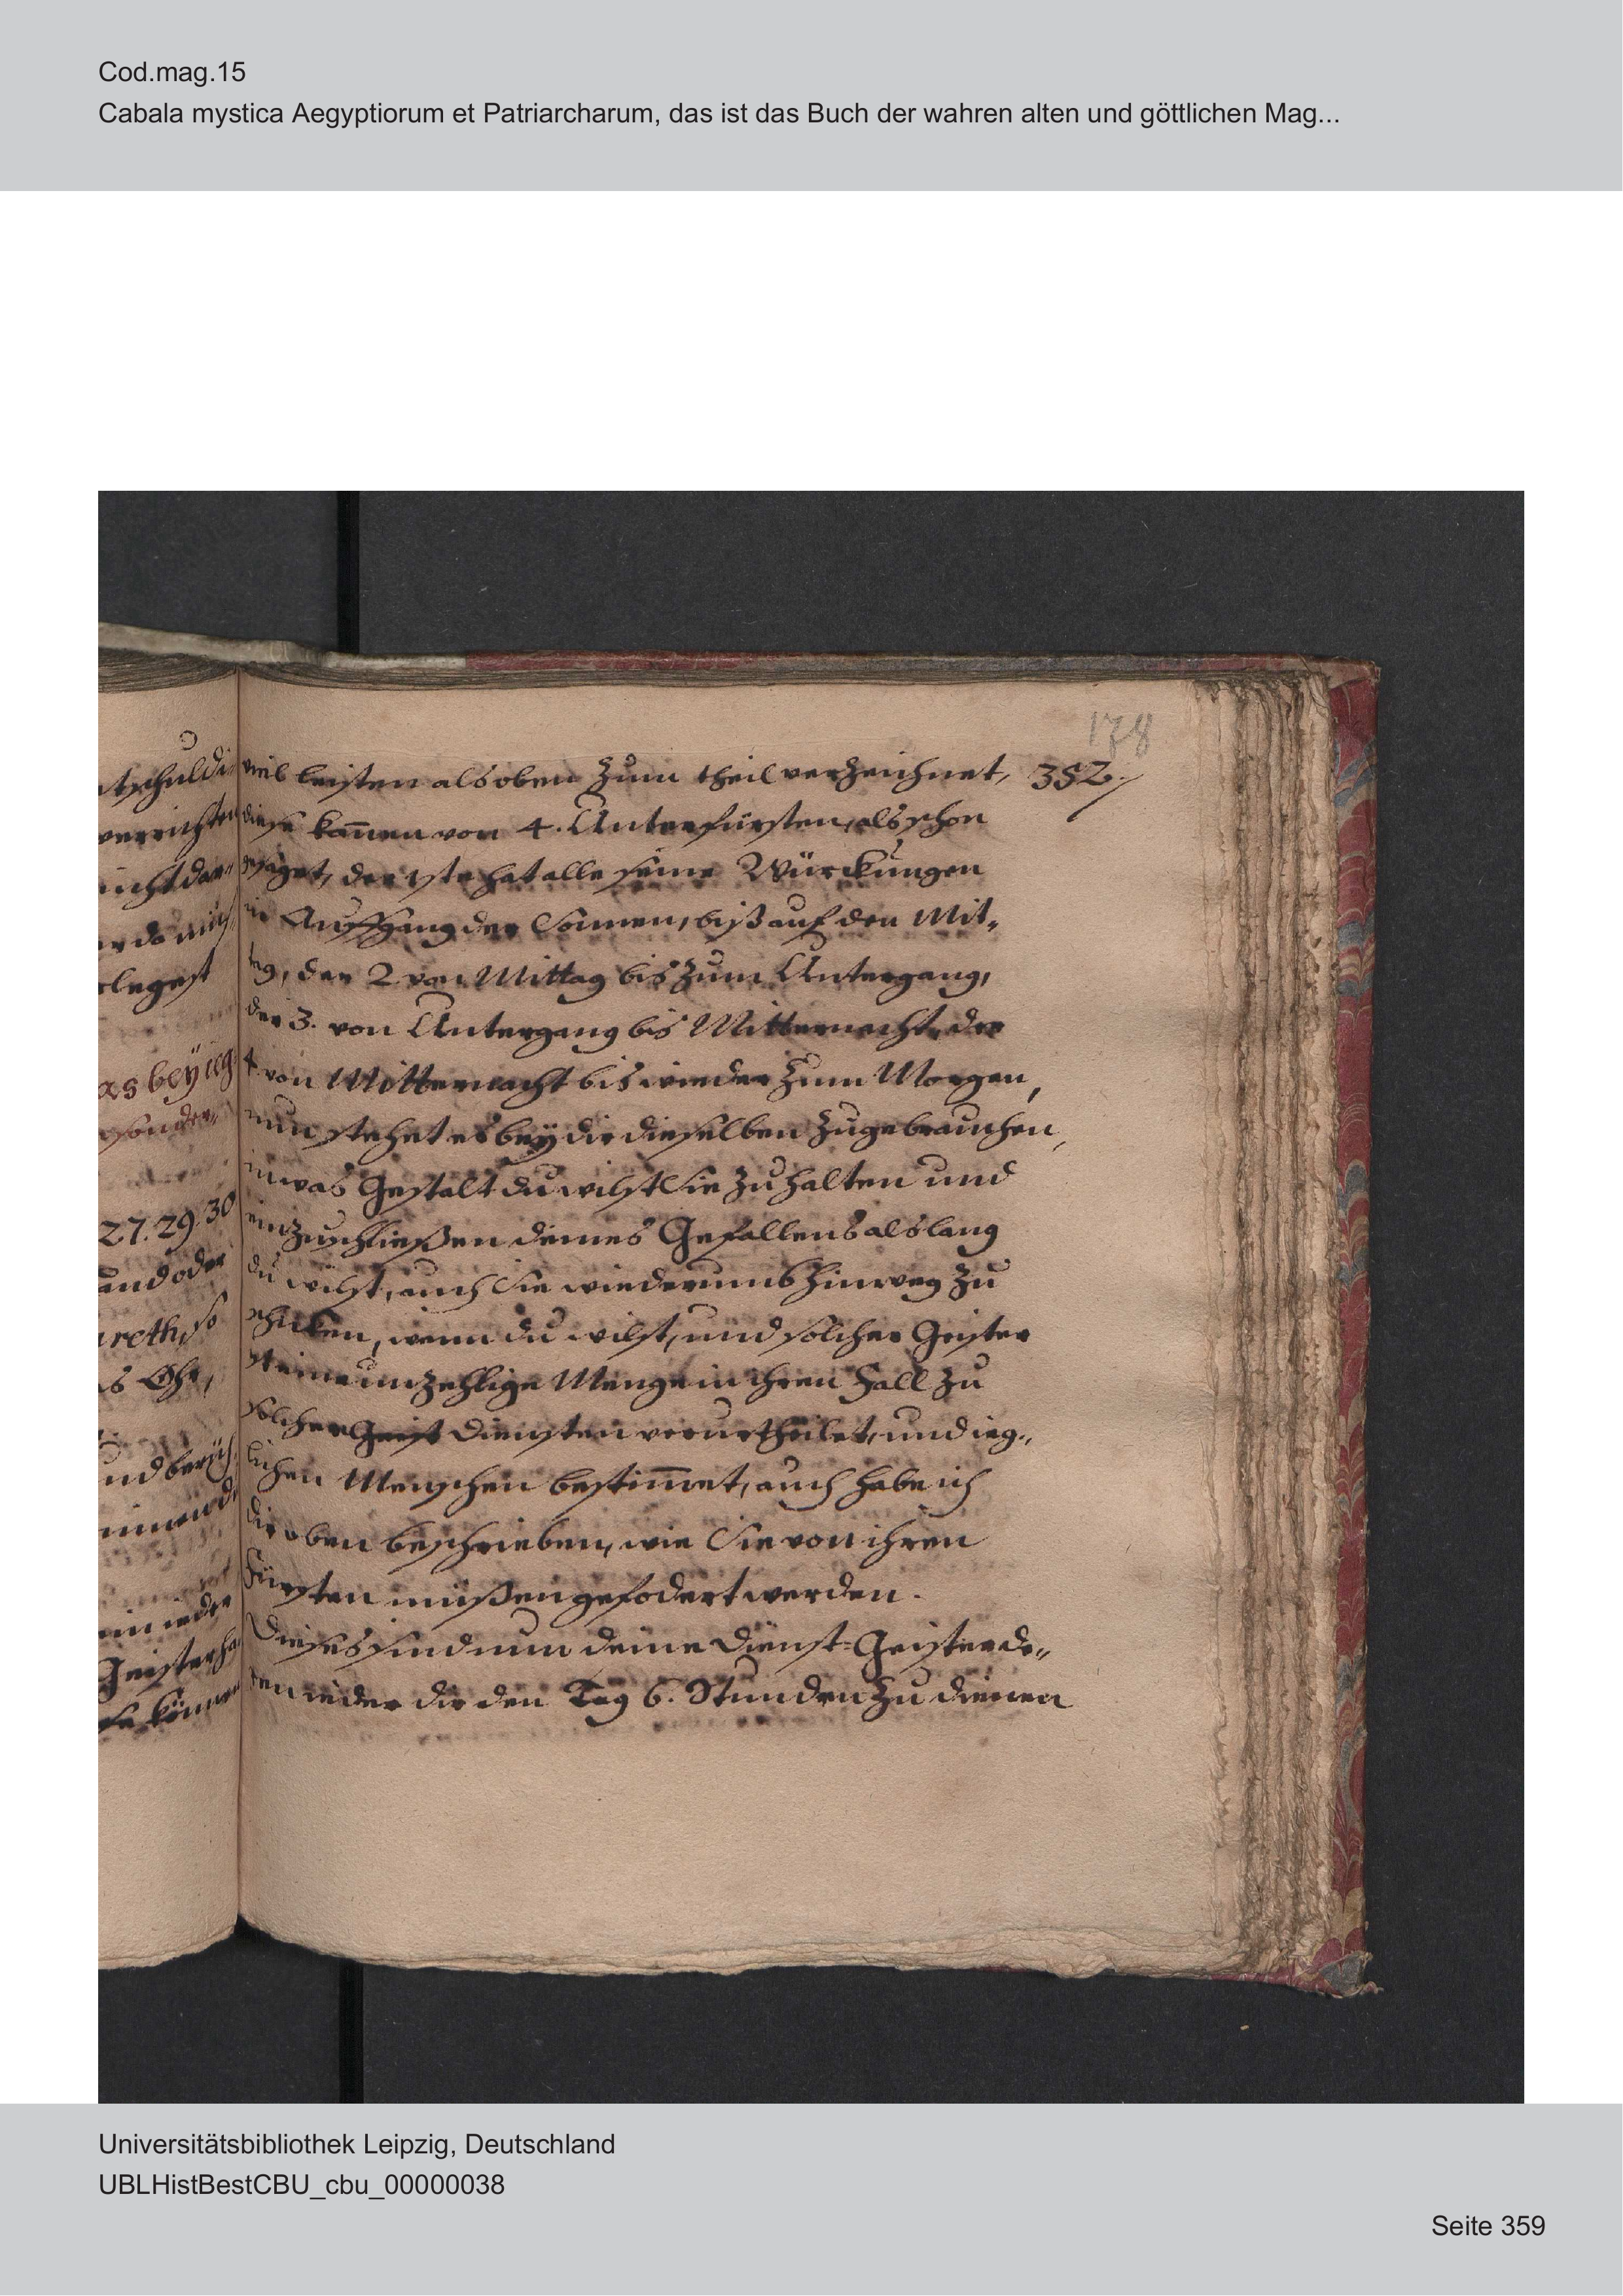 Cod.mag.15
Cabala mystica Aegyptiorum et Patriarcharum, das ist das Buch der wahren alten und göttlichen Mag...
178
352.
tschuldi
verrichten
nicht dar„
legest
as bey ieg
sonder„
27. 29. 30
und oder
areth, so
s Ohr,
Geister ha
viel leisten als oben zum theil verzeichnet,
diese kam̅en von 4. Unterfürsten, als schon
gesaget, der 1ste hat alle seine Würckungen
in Auffgang der Sonnen, biß auf den Mit„
tag, der 2 von Mittag bis zum Untergang,
der 3. von Untergang bis Mitternacht, der
4. von Mitternacht bis wieder zum Morgen,
nun stehet es bey dir dieselben zugebrauchen,
in was Gestalt du wilst Sie zu halten und
einzuschließen deines Gefallens als lang
du wilst, auch Sie wiederumb hinweg zu
schicken, wenn du wilst, und solcher Geister
ist eine unzehlige Menge in ihren Fall zu
solcher Geist Diensten verurtheilet, und ieg„
lichen Menschen bestim̅et, auch habe ich
dir oben beschrieben, wie Sie von ihren
Fürsten müßen gefodert werden.
Dieses sind nun deine Dienst=Geister de„
ren ieder dir den Tag 6. Stunden zu dienen
Universitätsbibliothek Leipzig, Deutschland
UBLHistBestCBU_cbu_00000038
Seite 359